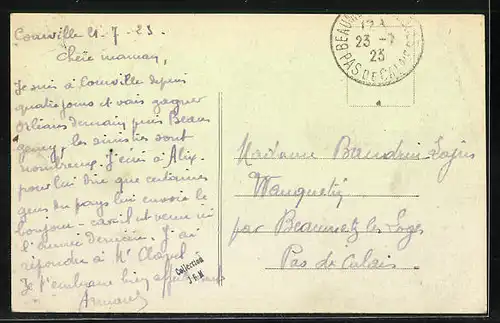 21-7-23.
Chère maman,
Je suis à depuis
quatre jours et vais gagner
Orléans demain puis Beau
gency, les sinistrés sont
nombreux. J'écris à Alix
pour lui dire que certaines
gens du pays lui envoie le
bonjour - car il est venu ici
l'année dernière. J'ai
répondre à Mr
Je t'embrasse bien
Armand
BEAUM
23 -7
23
PAS DE CALAIS
Madame
Wanquetin
par Beaumetz les Loges
Pas de Calais
Collection
J & M